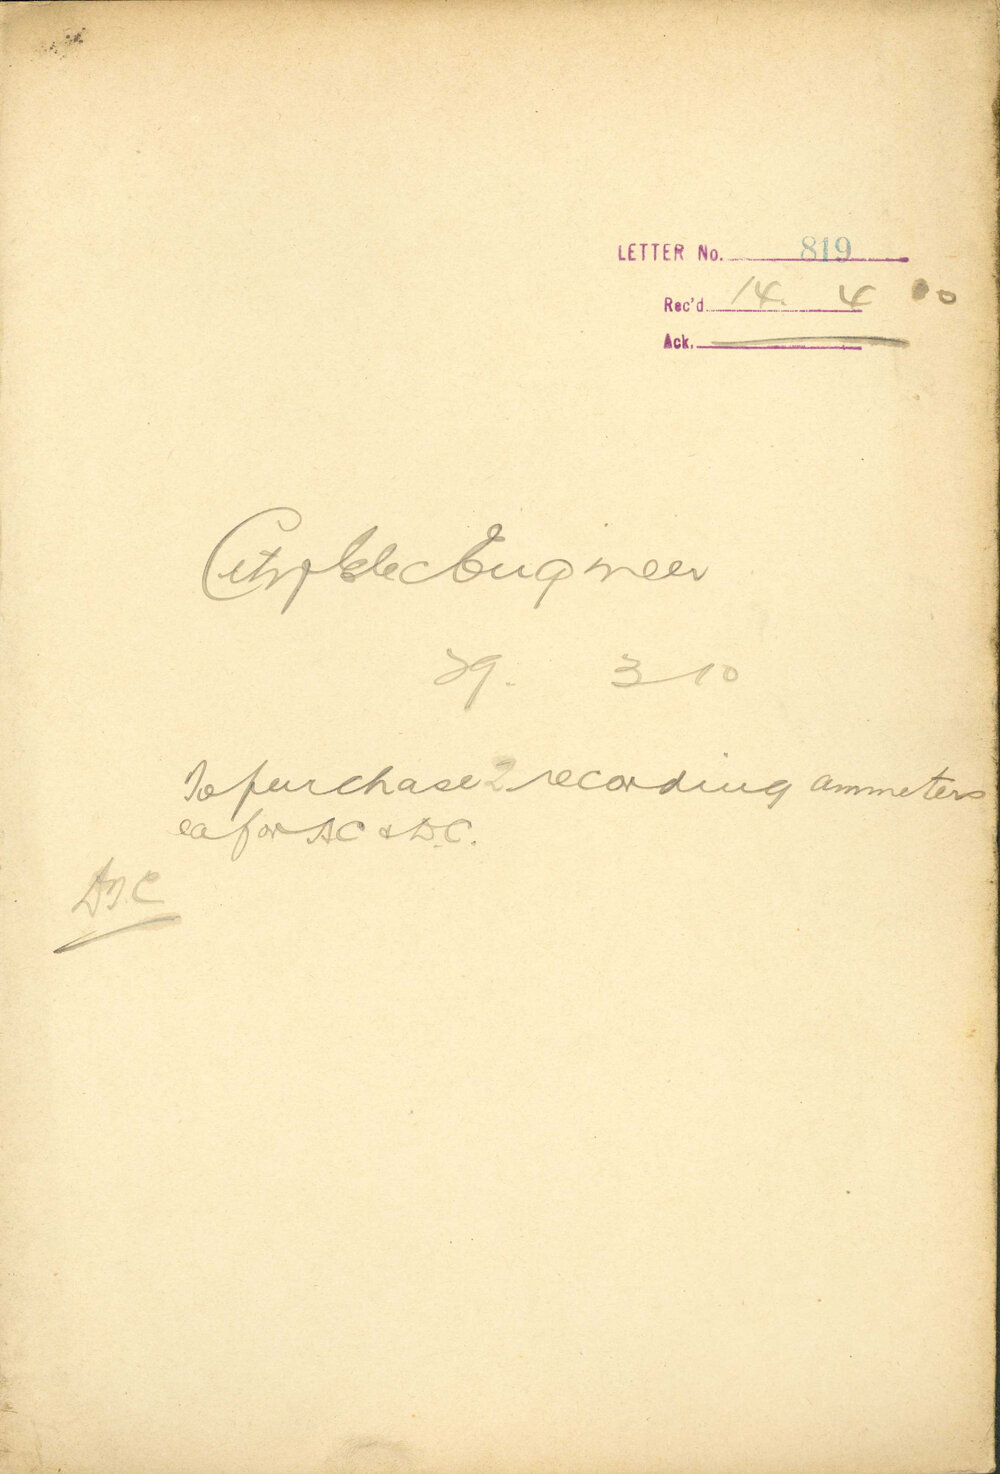 LETTER No. 819
Rec'd 14. 4 10
Ack.
City Elec Engineer
29. 3 10
To purchase 2 recording ammeters
ea for AC & D.C.